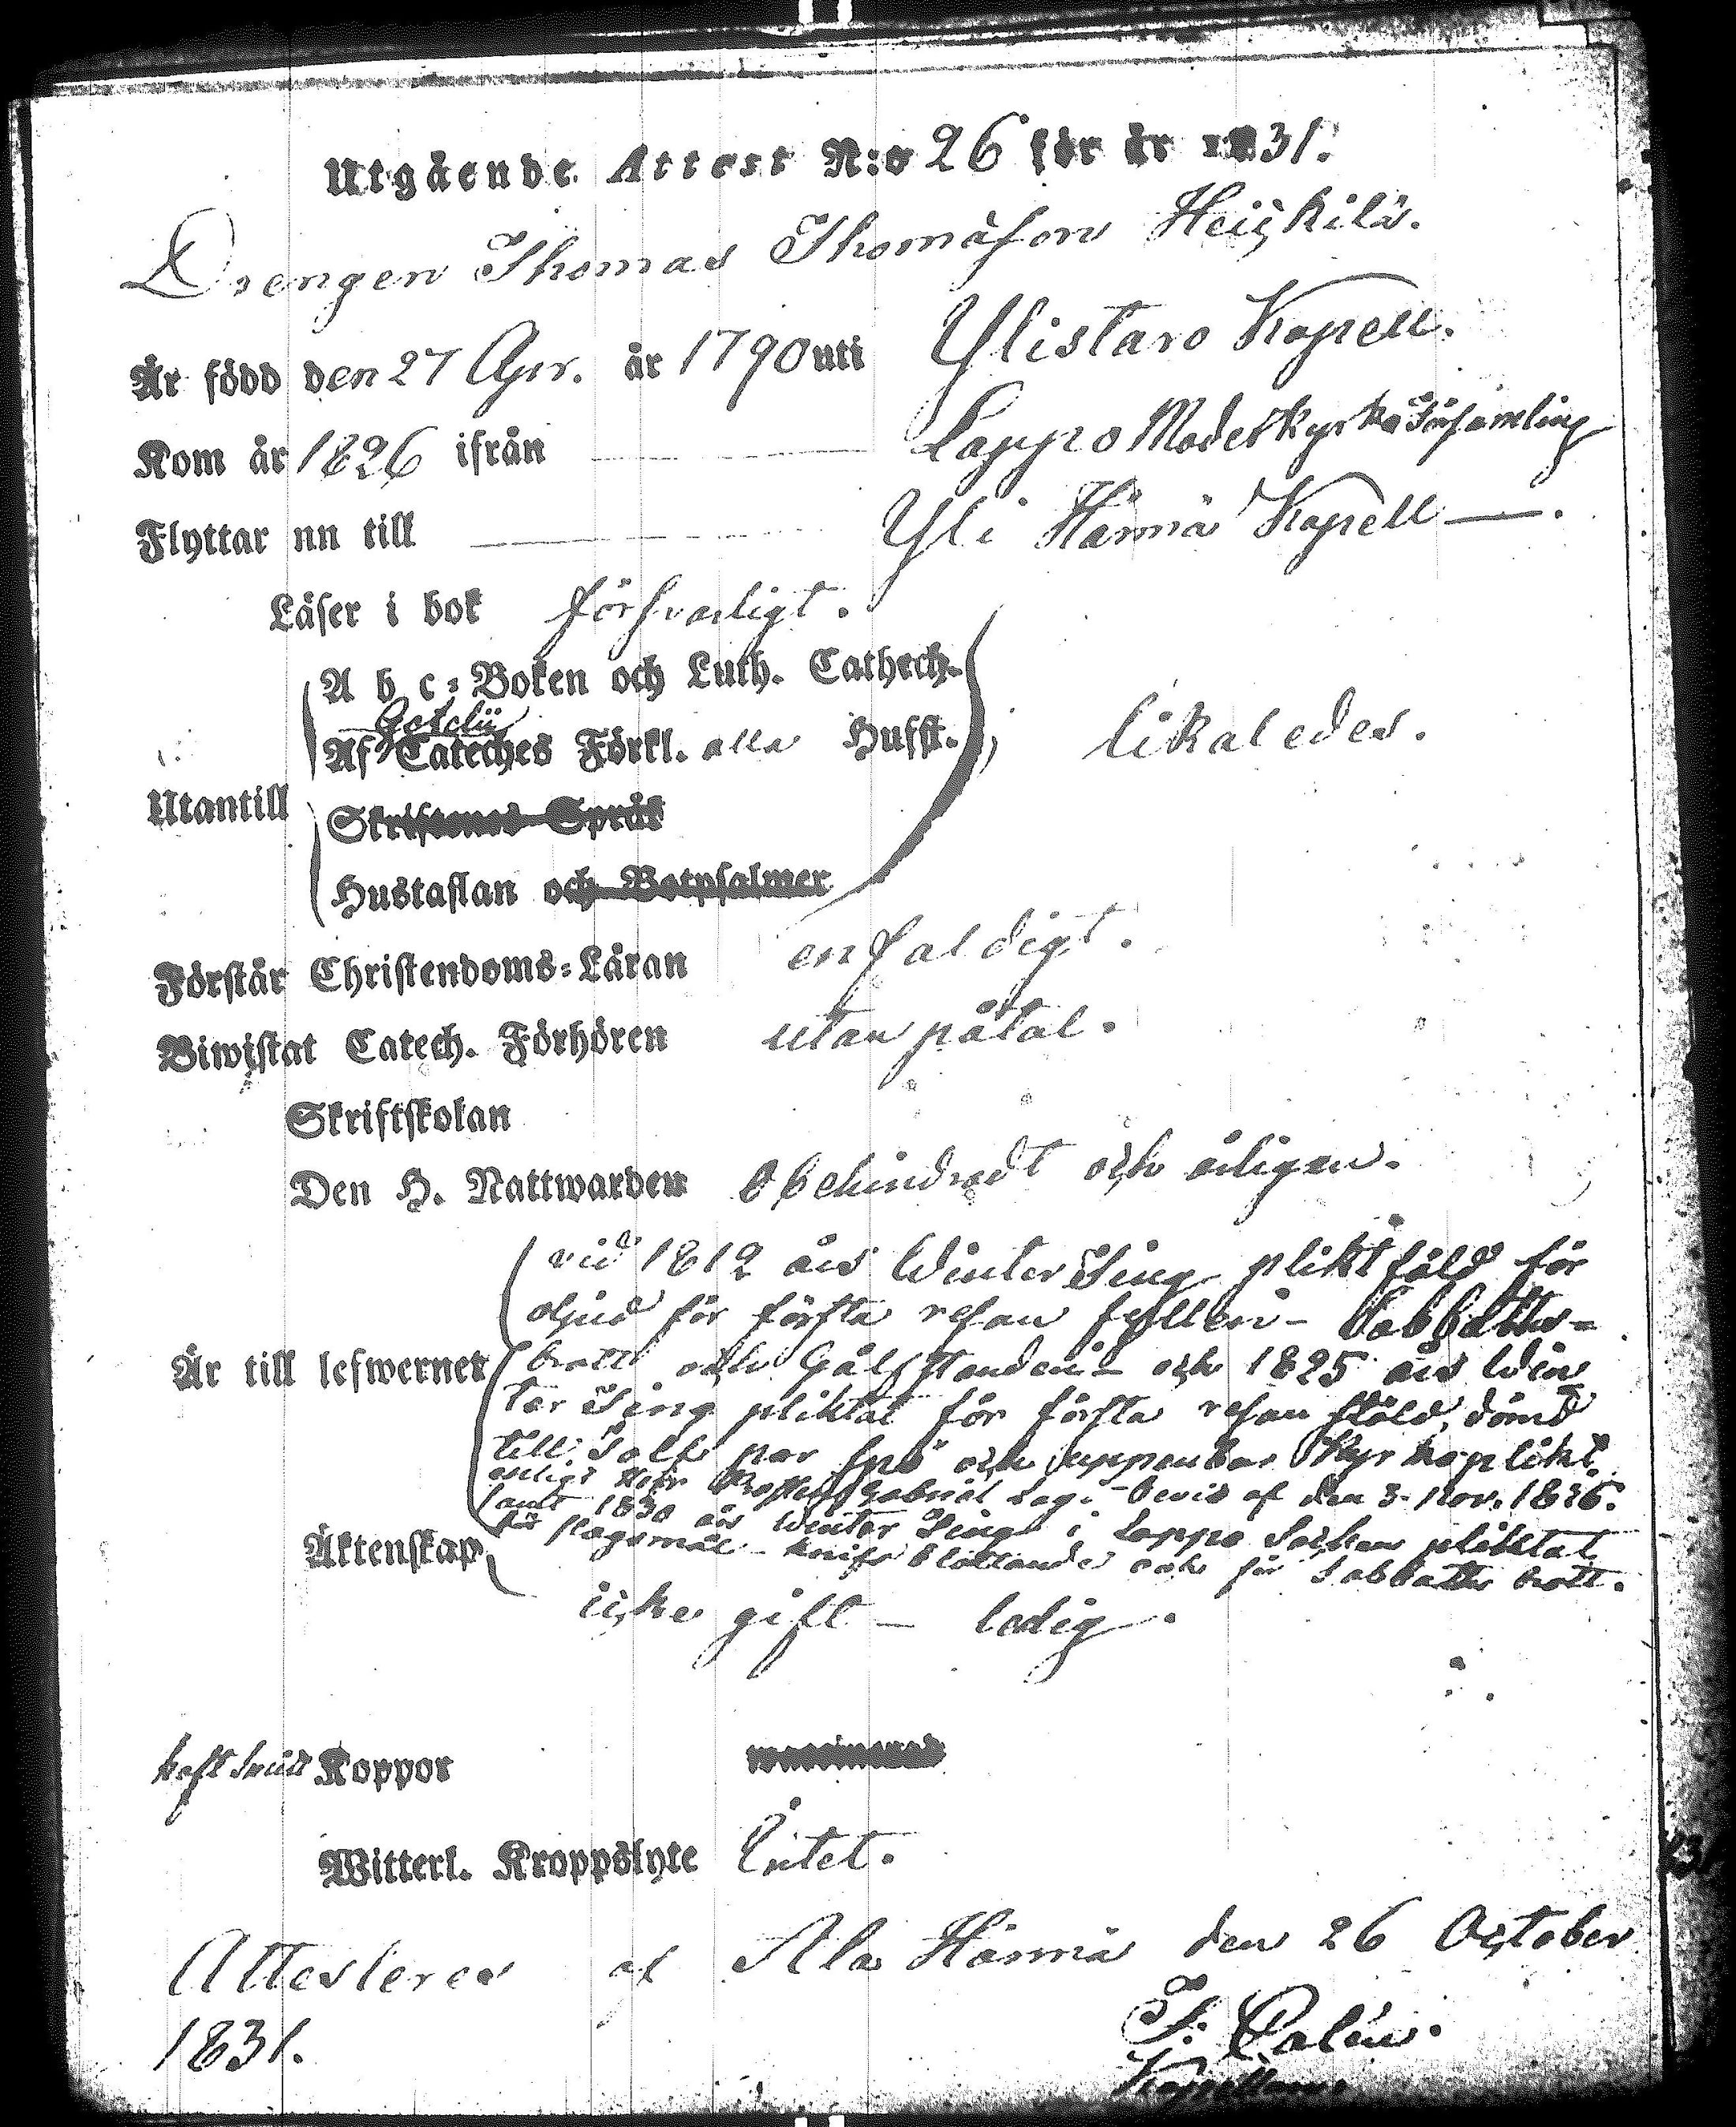 Utgående Attest N:o 26 för år 1831.
Drengen Thomas Thomasson Heickilä.
Är född den 27 Apr. år 1790 uti Ylistaro Kapell.
Kom år 1826 ifrån Lappo Moderkyrko Församling
Flyttar nu till Yli Härmä Kapell —.
Läser i bok försvarligt.
A b c-Boken och Luth. Cathech.
Af Cateches Förkl. alla Hufst. likaledes.
Utantill
Skriftenes Språk
Hustaflan och Botpsalmer
Förstår Christendoms-Läran enfaldigt.
Biwistat Catech. Förhören utan påtal.
Skriftskolan
Den H. Nattwarden obehindradt och årligen.
vid 1812 års Winter Ting pliktfäld för
oljud för första resan fylleri - Sabbaths-
Är till lefwernet brott och - och 1825 års Win
ter Ting pliktat för första resan stöld, dömd
till Tolf par spö och uppenbar Kyrkoplikt
enligt Herr Gabriel bevis af den 3. Nov. 1826.
samt 1830 års Winter Ting i Lappo Socken pliktat
Äktenskap för slagsmål - knifs blottande och för Sabbaths brott.
icke gift — ledig.
haft Koppor
Witterl. Kroppslyte Intet.
Attesteres af Ala Härmä den 26 October
1831.
Kapellan.